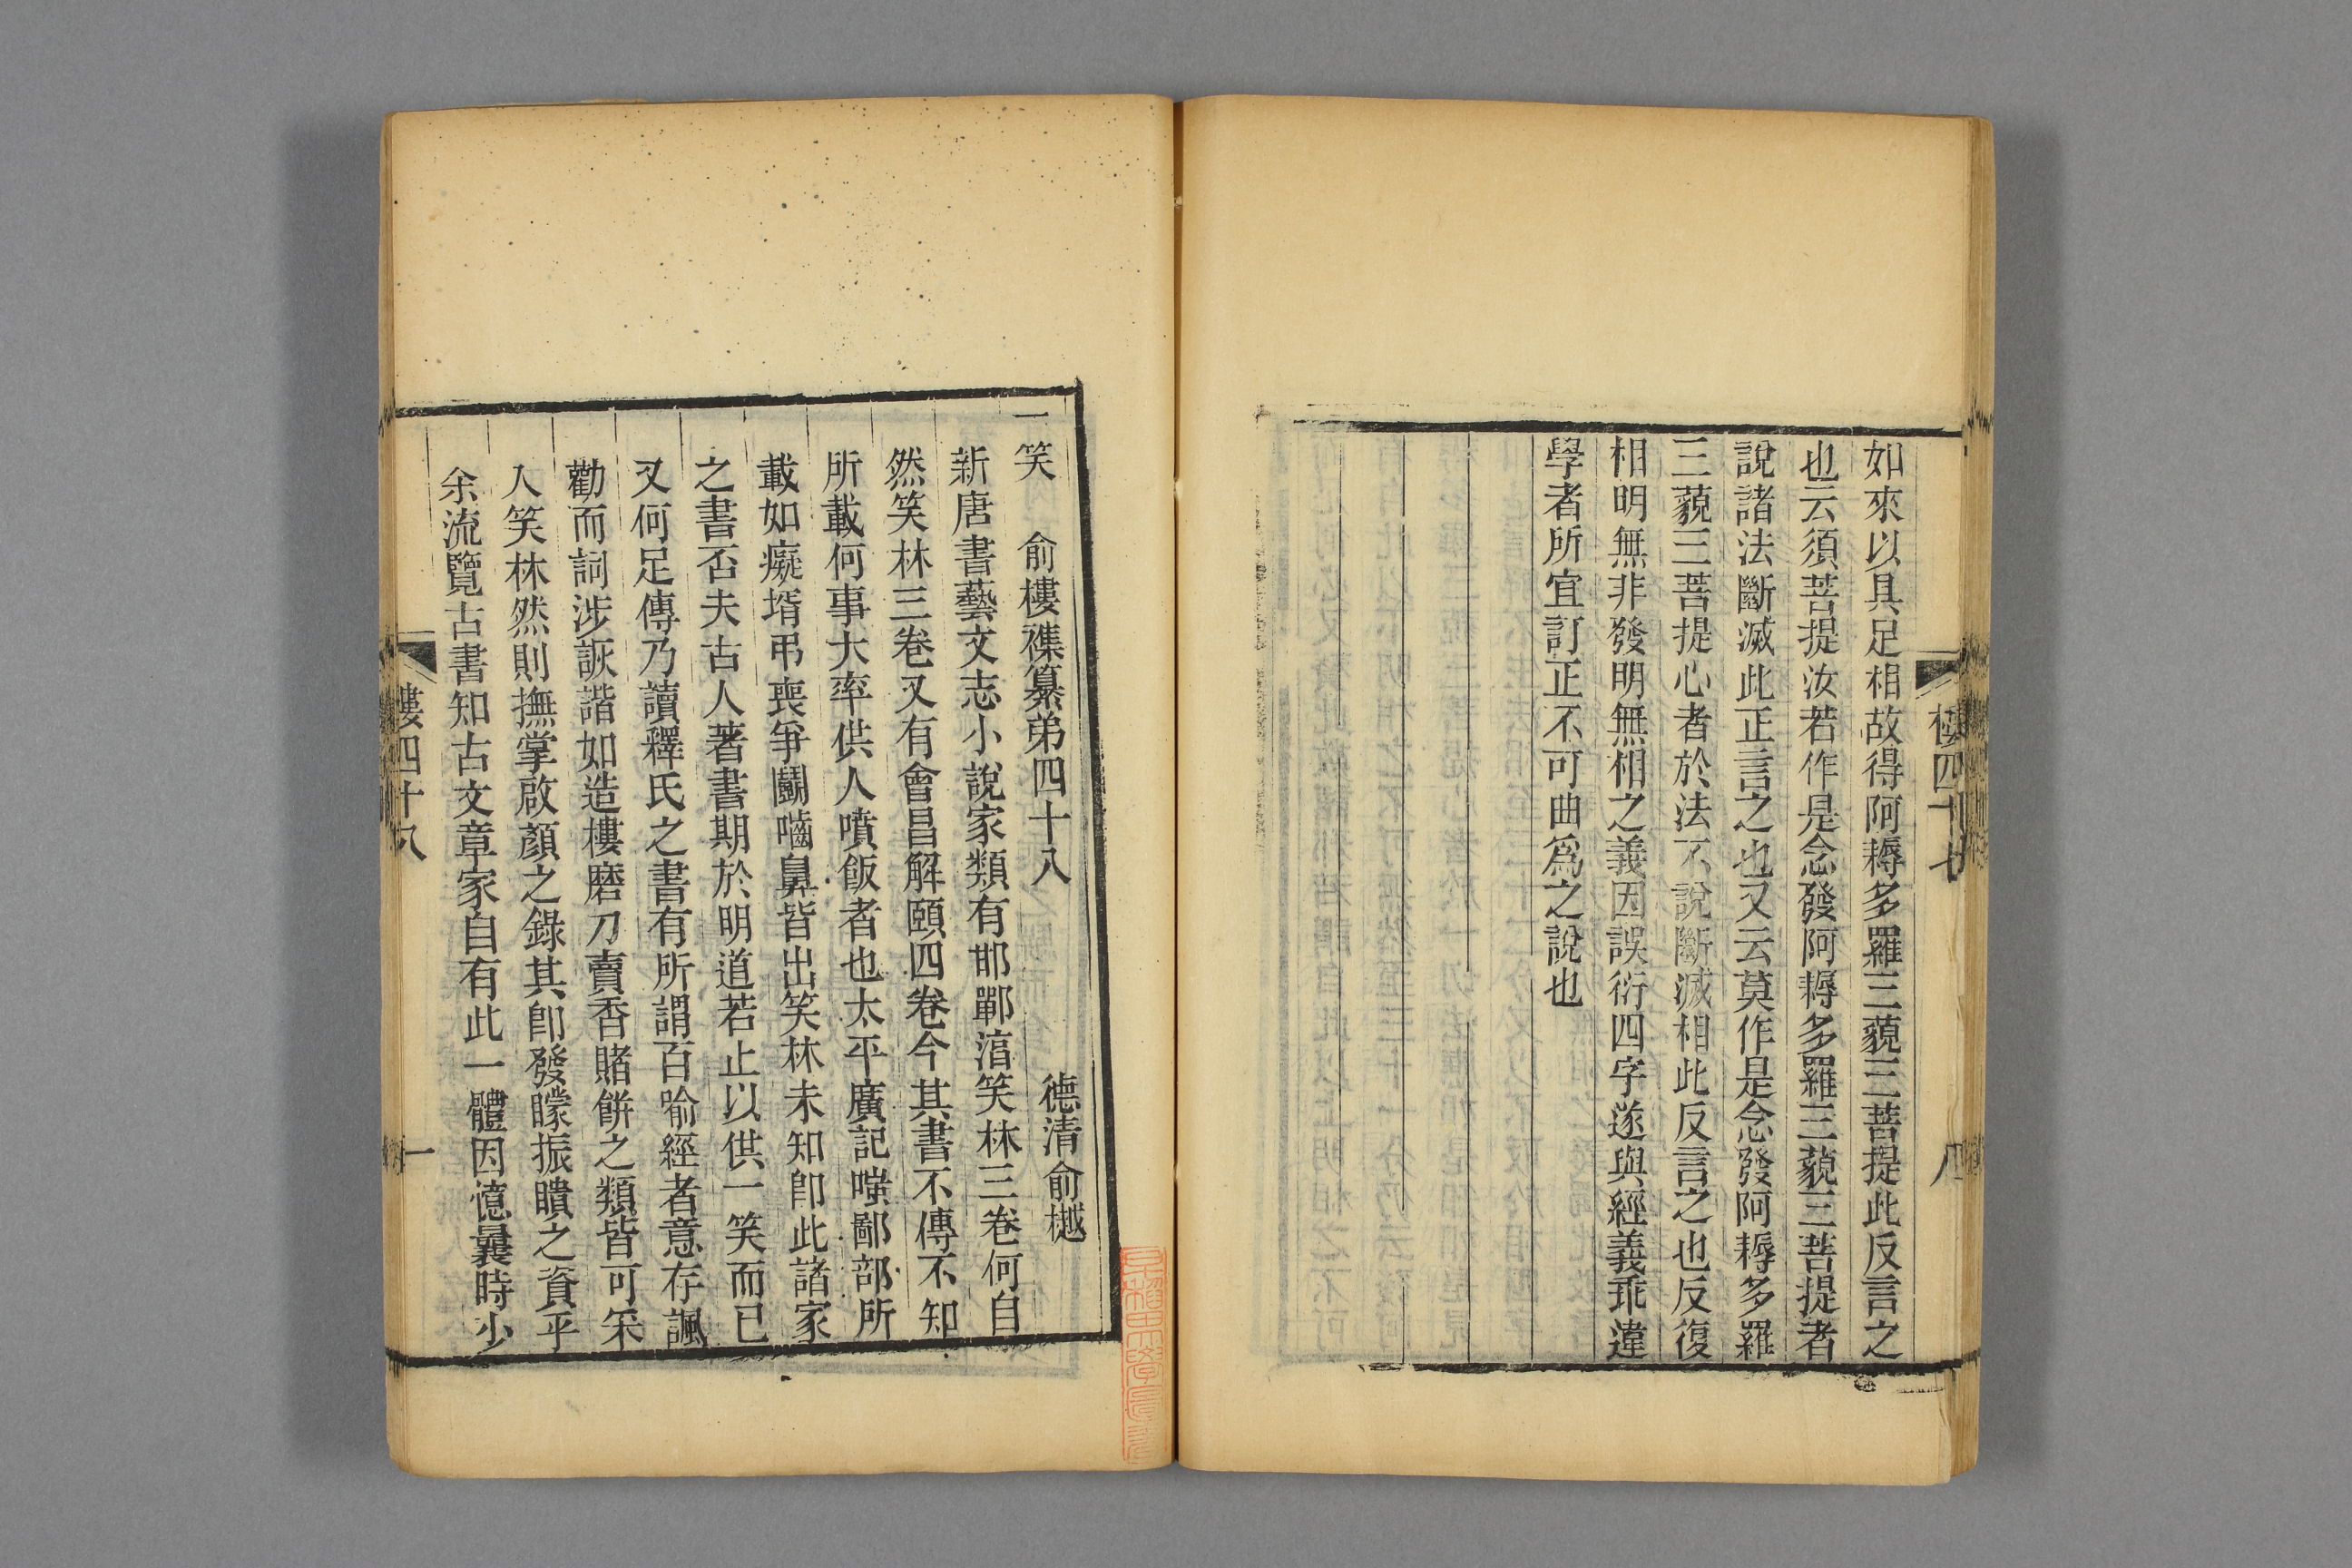 樓四十七
八
如來以具足相故得阿耨多羅三藐三菩提此反言之
也云須菩提汝若作是念發阿耨多羅三藐三菩提者
說諸法斷滅此正言之也又云莫作是念發阿耨多羅
三藐三菩提心者於法不說斷滅相此反言之也反復
相明無非發明無相之義因誤衍四字遂與經義乖違
學者所宜訂正不可曲爲之說也
一笑
俞樓襍纂弟四十八
德清俞樾
新唐書藝文志小說家類有邯鄲湻笑林三卷何自
然笑林三卷又有會昌解頤四卷今其書不傳不知
所載何事大率供人噴飯者也太平廣記嗤鄙部所
載如癡壻弔喪爭鬭囓鼻皆出笑林未知卽此諸家
之書否夫古人著書期於明道若止以供一笑而已
又何足傳乃讀釋氏之書有所謂百喻經者意存諷
勸而詞涉詼諧如造樓磨刀賣香賭餅之類皆可釆
入笑林然則撫掌啟顏之錄其卽發矇振聵之資乎
余流覽古書知古文章家自有此一體因憶曩時少
樓四十八
一